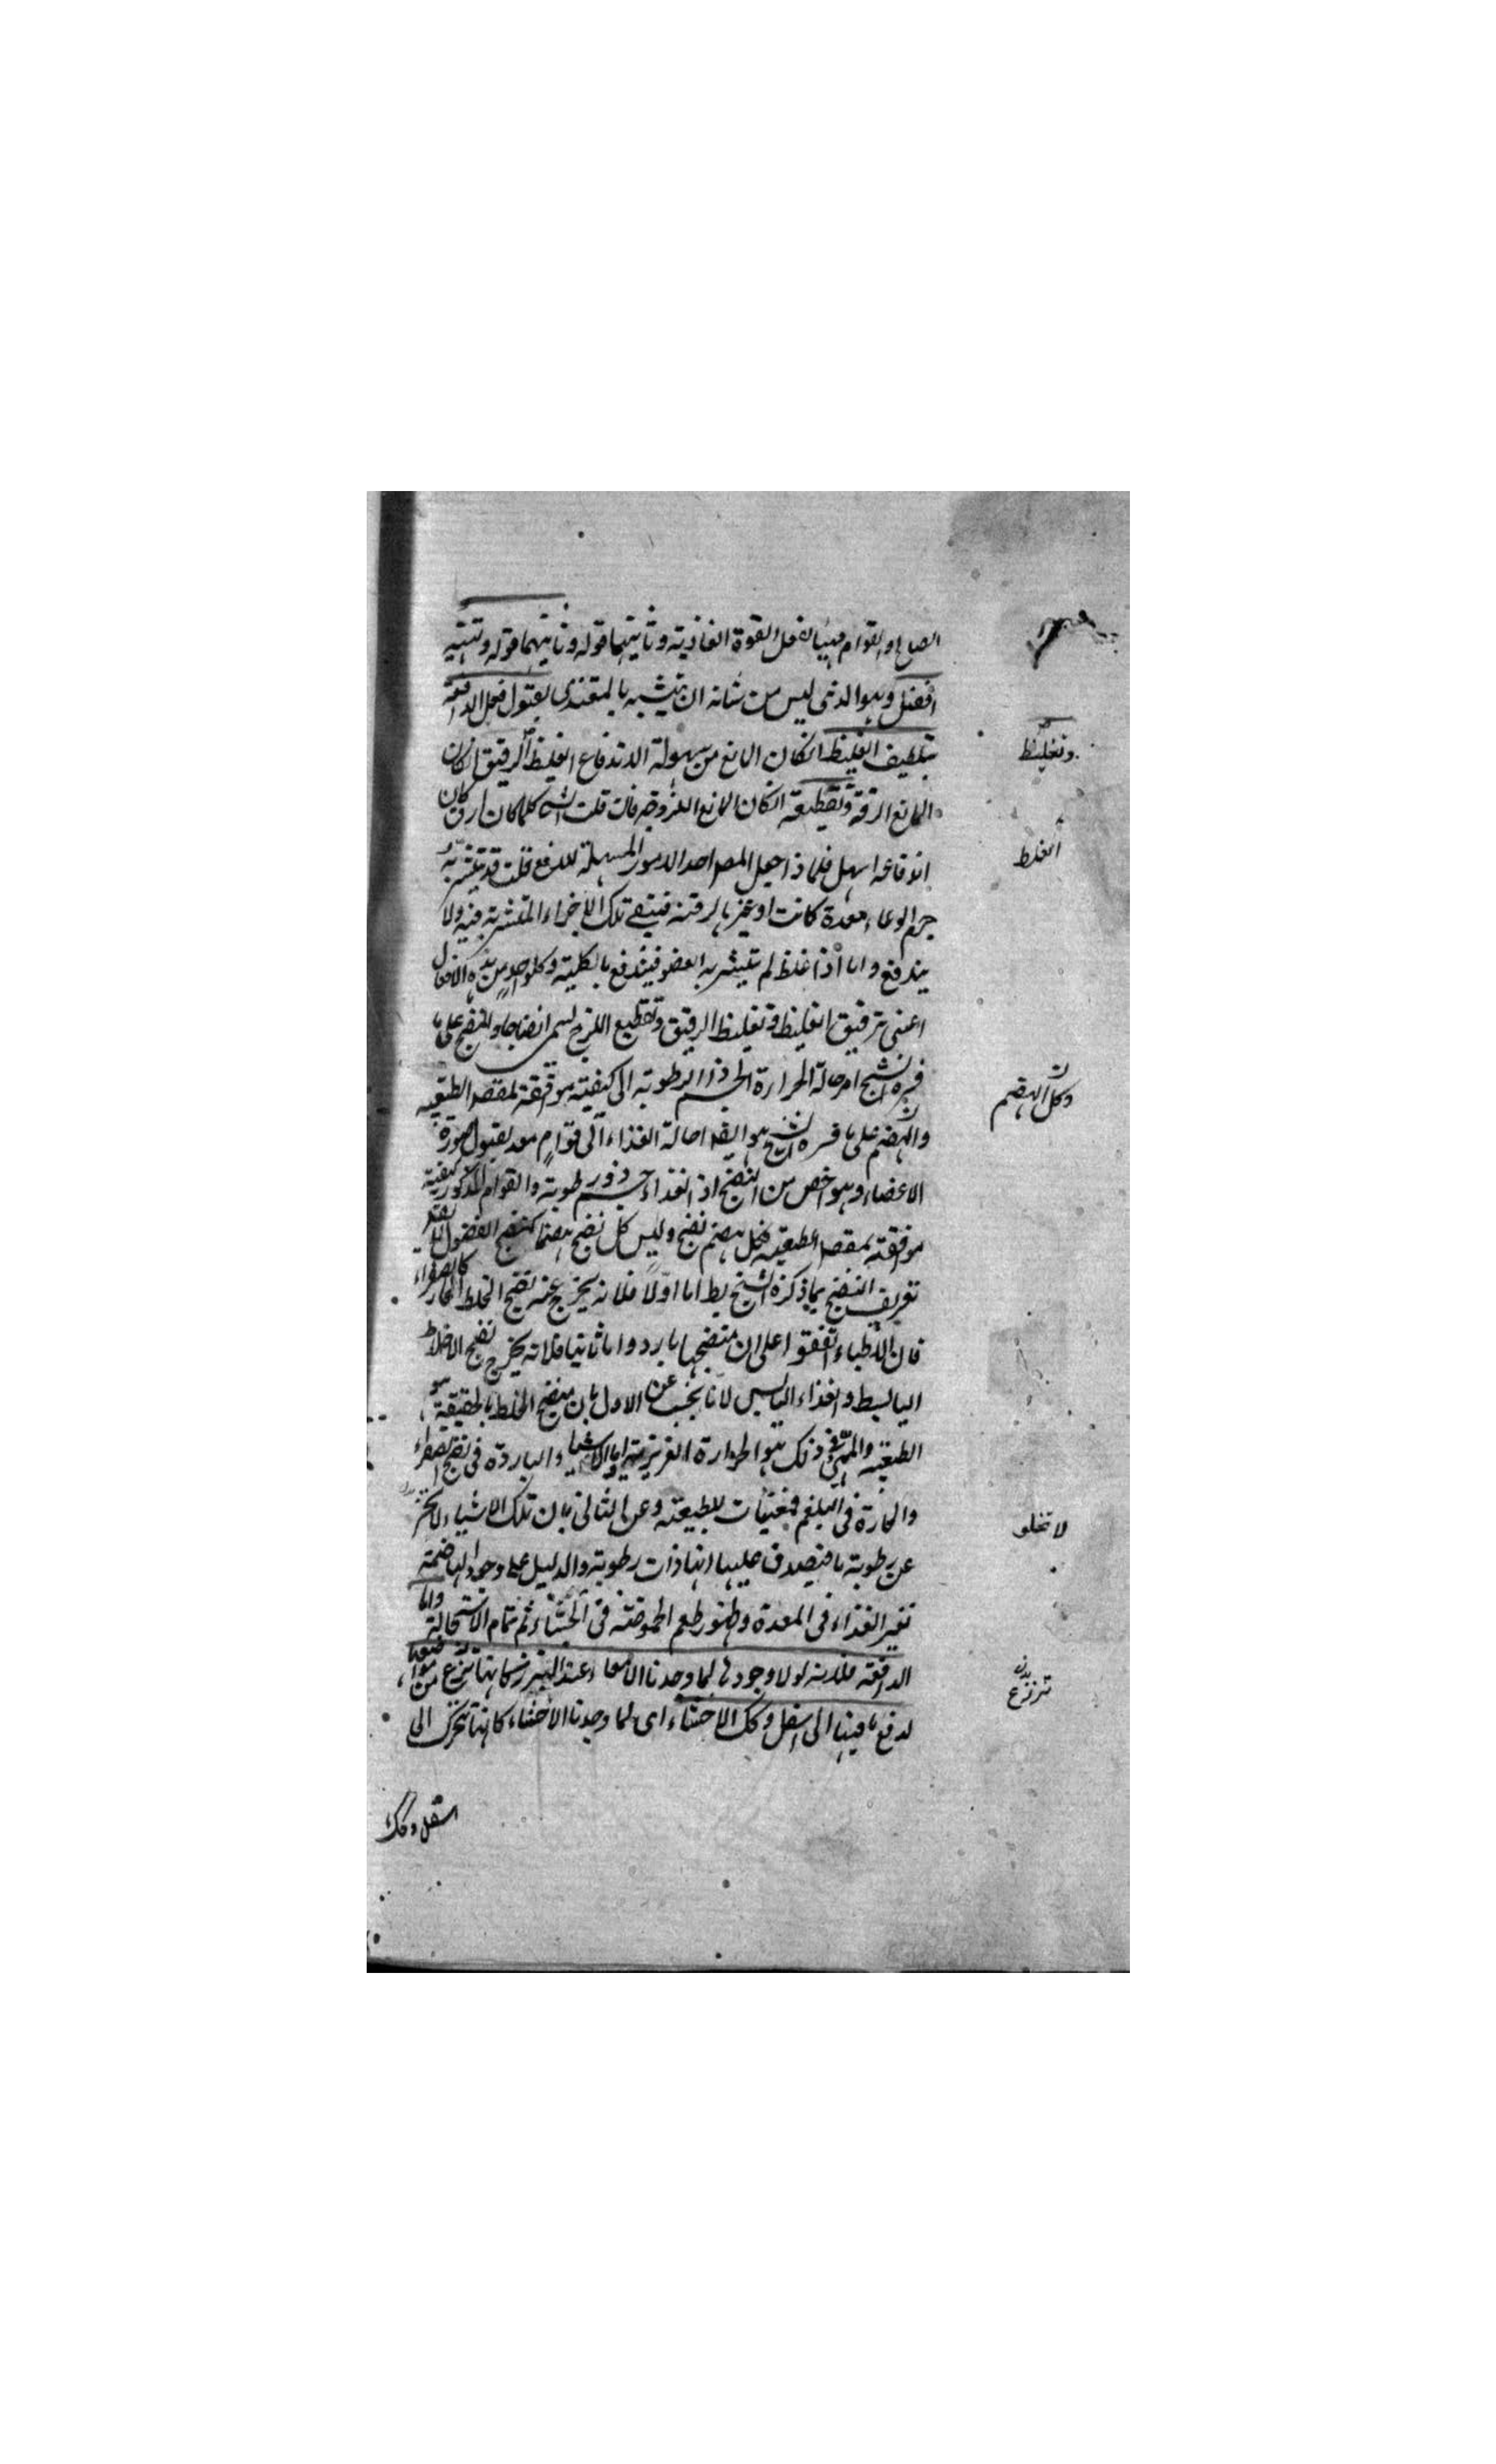 الصالح والقوام مهيأ لفعل القوة الغاذية وثانيتهما قوله وثانيتهما قوله وتهيئة
الفضل وهو الذي ليس من شأنه ان يتشبه بالمغتذي لقبول فعل الدافعة
بتلطيف الغليظ انكان المانع من سهولة الاندفاع الغليظ الرقيق انكان
المانع الرقة وتقطيعه انكان المانع اللزوجة فان قلت الشئ كلما كان ارق كان
اندفاعه اسهل فلماذا جعل المصر احد الامور المسهلة للدفع قلت قد يتشربه
جرم الوعاء معدة كانت او غيرها لرقته فيبقى تلك الاجزاء المتشربة فيه ولا
يندفع واما اذا غلظ لم يتشربه العضو فيندفع بالكلية وكلواحد من هذه الافعال
اعني ترقيق الغليظ وتغليظ الرقيق وتقطيع اللزج يسمى انضاجا والنضج على ما
فسره الشيخ احالة الحرارة الجسم ذا الرطوبة الى كيفية موافقة لمقصد الطبيعة
والهضم على ما فسره الشيخ هو ايضا احالة الغذاء الى قوام معد لقبول صورة
الاعضاء وهو اخص من النضج اذ الغذاء جسم ذو رطوبة والقوام المذكور كيفية
موافقة لمقصد الطبيعة فكل هضم نضج وليس كل نضج هضما كنضج الفضول
تعريف النضج بما ذكره الشيخ يط اما اولا فلانه يخرج عنه نضج الخلط الحار كالصفراء
فان الاطباء اتفقوا على ان منضجها بارد واما ثانيا فلانه يخرج نضج الاخلاط
اليابسة والغذاء اليابس لانا نجيب عن الاول بان منضج الخلط بالحقيقة هو
الطبيعة والمهيئ في ذلك هو الحرارة الغريزية واما الاشياء الباردة في نضج الصفراء
والحارة في البلغم فمعينات للطبيعة وعن الثاني بان تلك الاشياء لا
عن رطوبة ما فيصدق عليها انها ذات رطوبة والدليل على وجود الهاضمة
تغير الغذاء في المعدة وظهور طعم الحموضة في الجشاء ثم تمام الاستحالة واما
الدافعة فلانه لولا وجودها لما وجدنا الامعاء عند التبرز كانها تنزع من موضعها
لدفع ما فيها الى اسفل وكك الاحشاء اى لما وجدنا الاحشاء كانها تتحرك الى
اسفل وكك
وتغليظ
الغلظ
وكل الهضم
لا تخلو